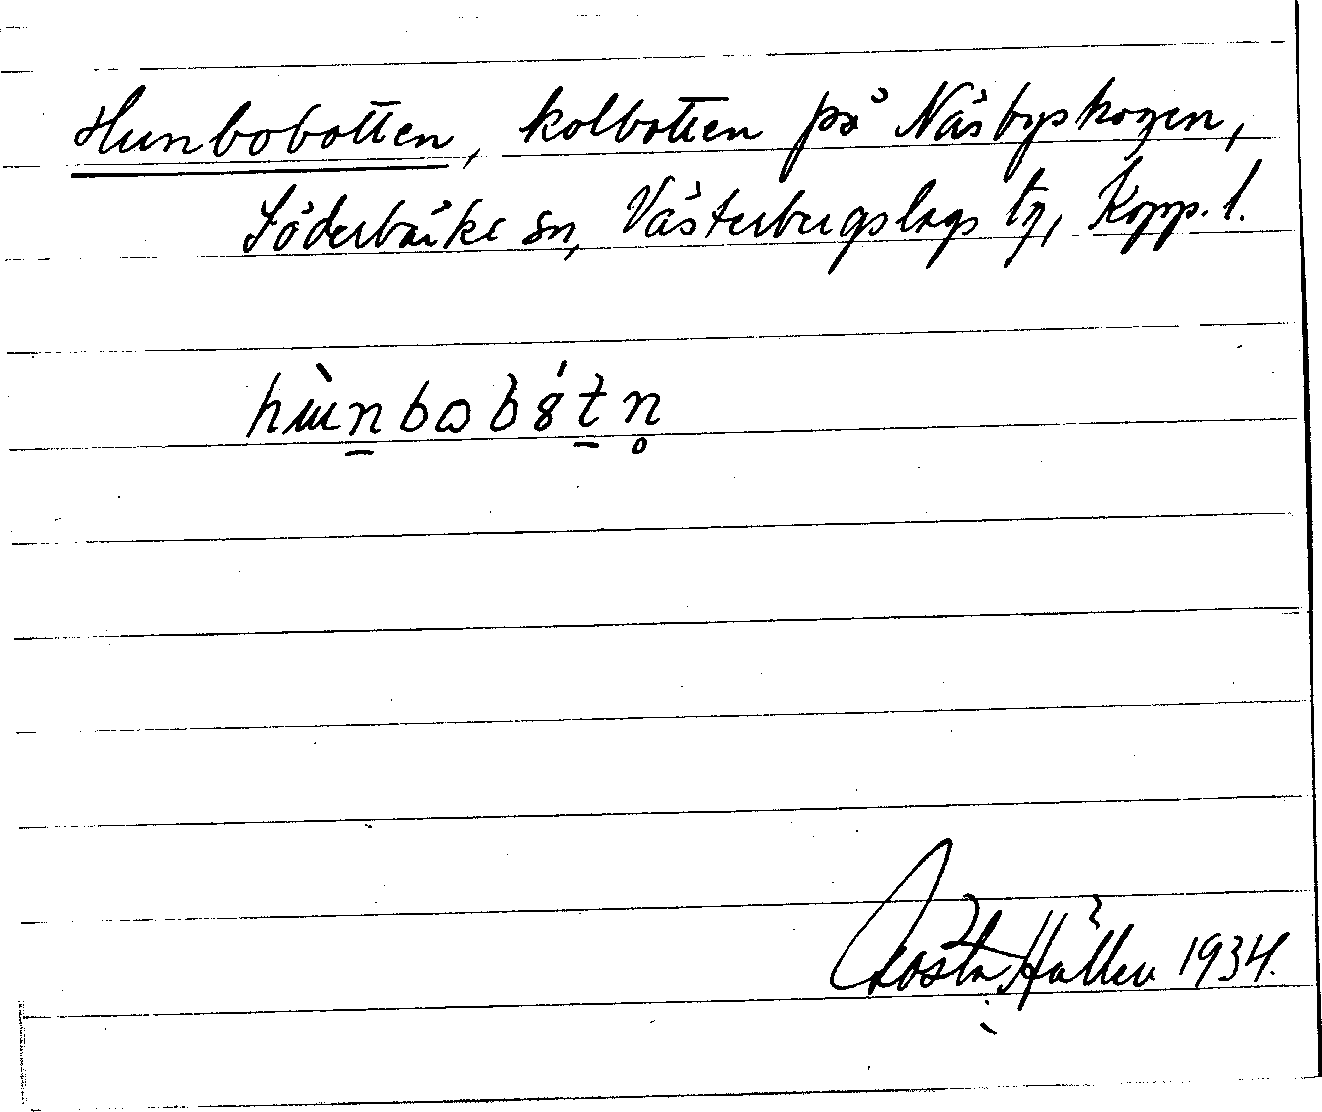 Hunbobotten, kolbotten på Näsbyskogen,
Söderbärke sn, Västerbergslags tg, Kopp. l.
hɯ̀n̠bωbꞵ́t̠n̥
Gösta Hållen 1934.